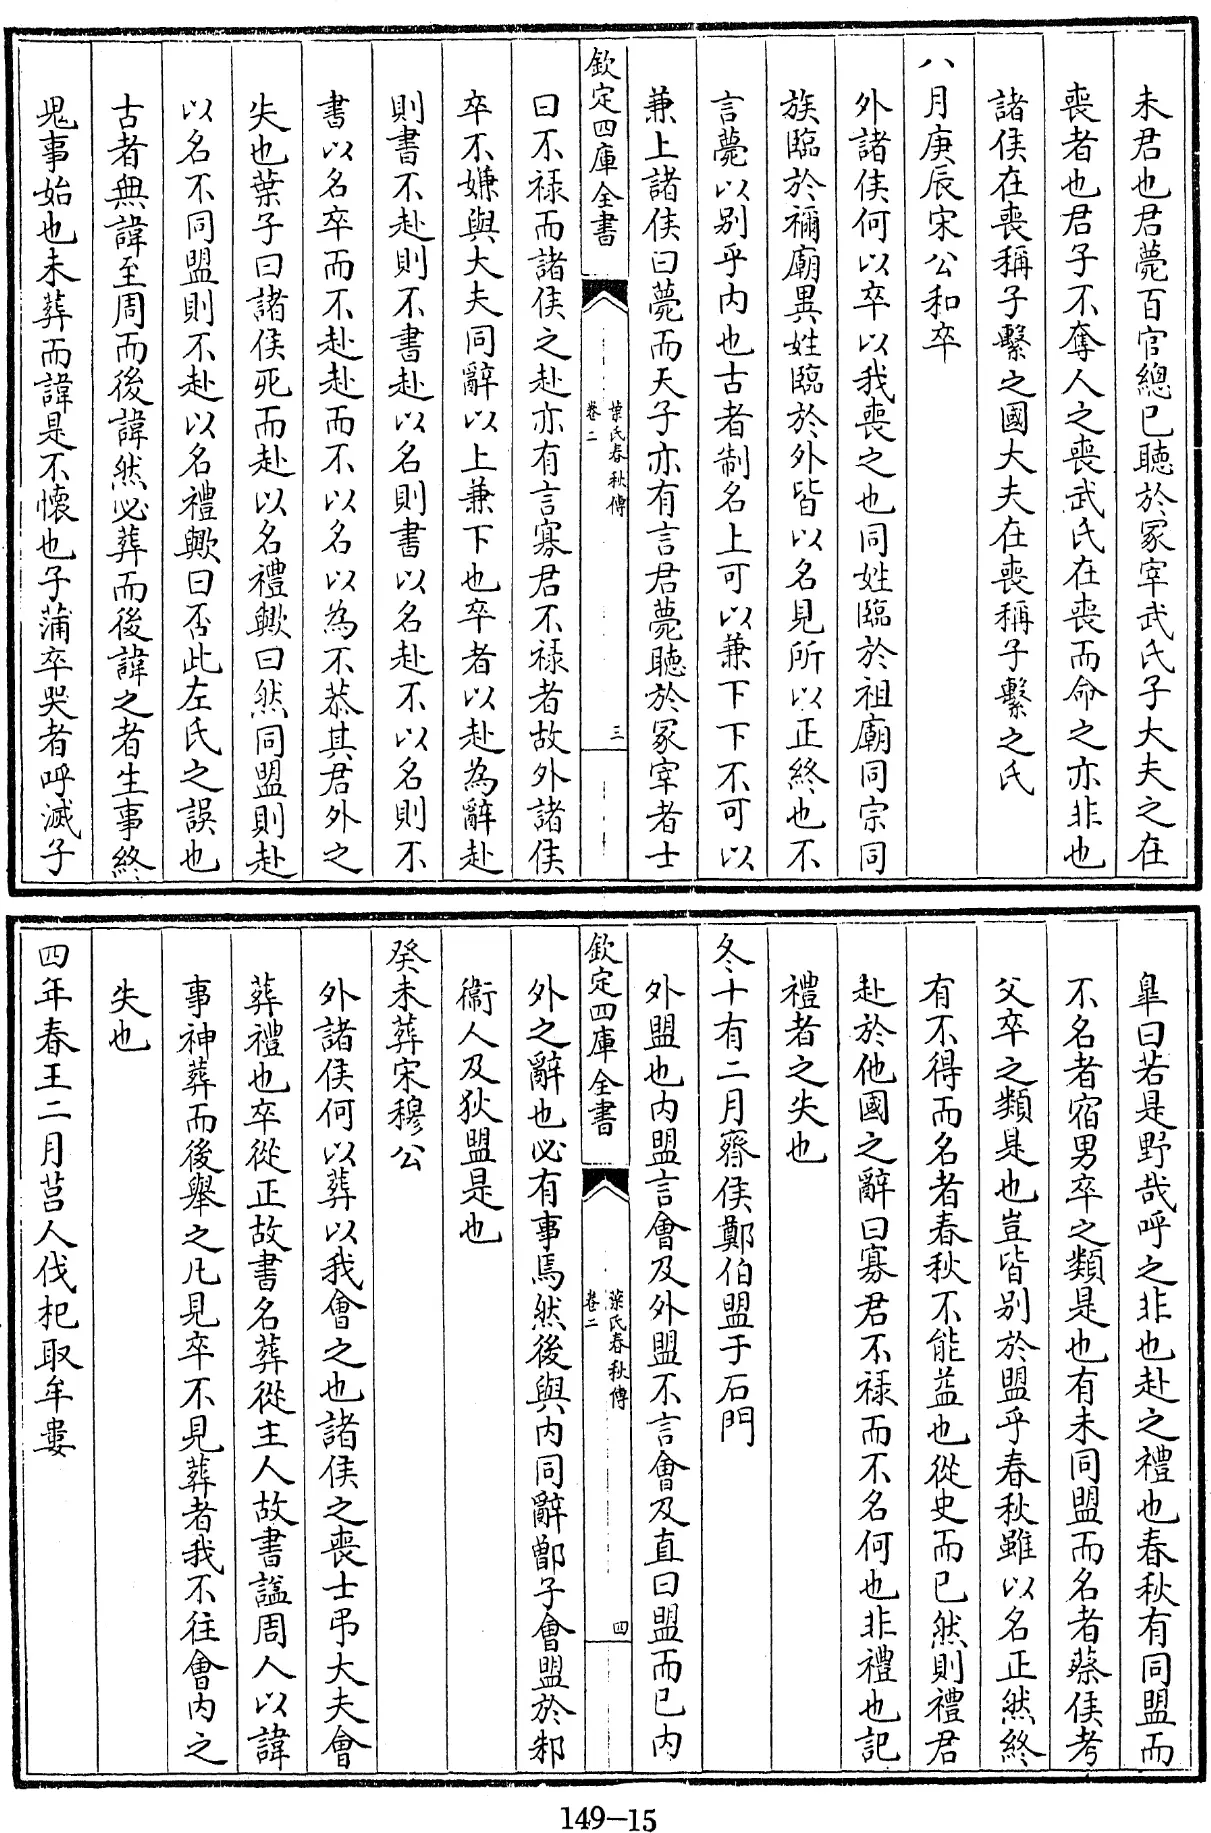 未君也君薨百官總已聽於冢宰武氏子大夫之在
喪者也君子不奪人之喪武氏在喪而命之亦非也
諸侯在喪稱子繫之國大夫在喪稱子繫之氏
八月庚辰宋公和卒
外諸侯何以卒以我喪之也同姓臨於祖廟同宗同
族臨於禰廟異姓臨於外皆以名見所以正終也不
言薨以别乎内也古者制名上可以兼下下不可以
兼上諸侯曰薨而天子亦有言君薨聽於冢宰者士
欽定四庫全書
葉氏春秋傳
卷二
三
曰不禄而諸侯之赴亦有言寡君不禄者故外諸侯
卒不嫌與大夫同辭以上兼下也卒者以赴為辭赴
則書不赴則不書赴以名則書以名赴不以名則不
書以名卒而不赴赴而不以名以為不恭其君外之
失也葉子曰諸侯死而赴以名禮歟曰然同盟則赴
以名不同盟則不赴以名禮歟曰否此左氏之誤也
古者無諱至周而後諱然必葬而後諱之者生事終
鬼事始也未葬而諱是不懷也子蒲卒哭者呼滅子
臯曰若是野哉呼之非也赴之禮也春秋有同盟而
不名者宿男卒之類是也有未同盟而名者蔡侯考
父卒之類是也豈皆别於盟乎春秋雖以名正然終
有不得而名者春秋不能益也從史而已然則禮君
赴於他國之辭曰寡君不禄而不名何也非禮也記
禮者之失也
冬十有二月齊侯鄭伯盟于石門
外盟也内盟言會及外盟不言會及直曰盟而已内
欽定四庫全書
葉氏春秋傳
卷二
四
外之辭也必有事焉然後與内同辭鄫子會盟於邾
衞人及狄盟是也
癸未葬宋穆公
外諸侯何以葬以我會之也諸侯之喪士弔大夫會
葬禮也卒從正故書名葬從主人故書諡周人以諱
事神葬而後舉之凡見卒不見葬者我不往會内之
失也
四年春王二月莒人伐杞取牟婁
149-15